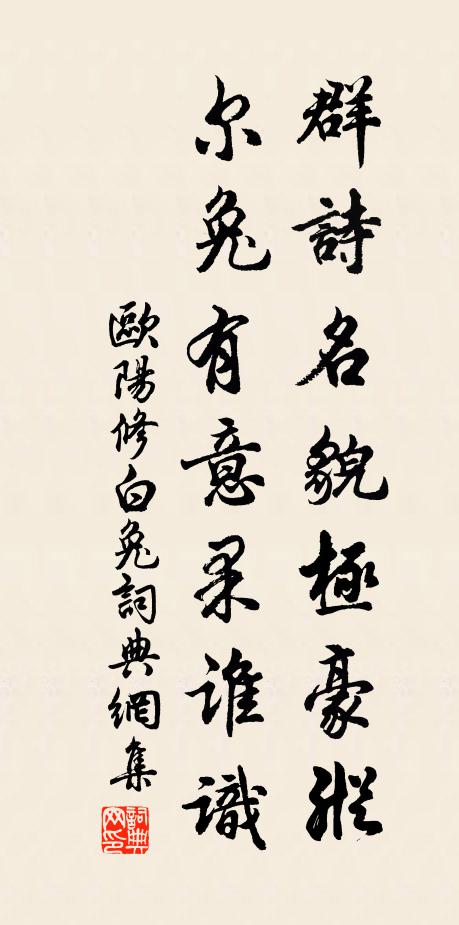 群詩名貌極豪縱
尔兔有意果誰識
歐陽修白兔詞典網集
詞典網印